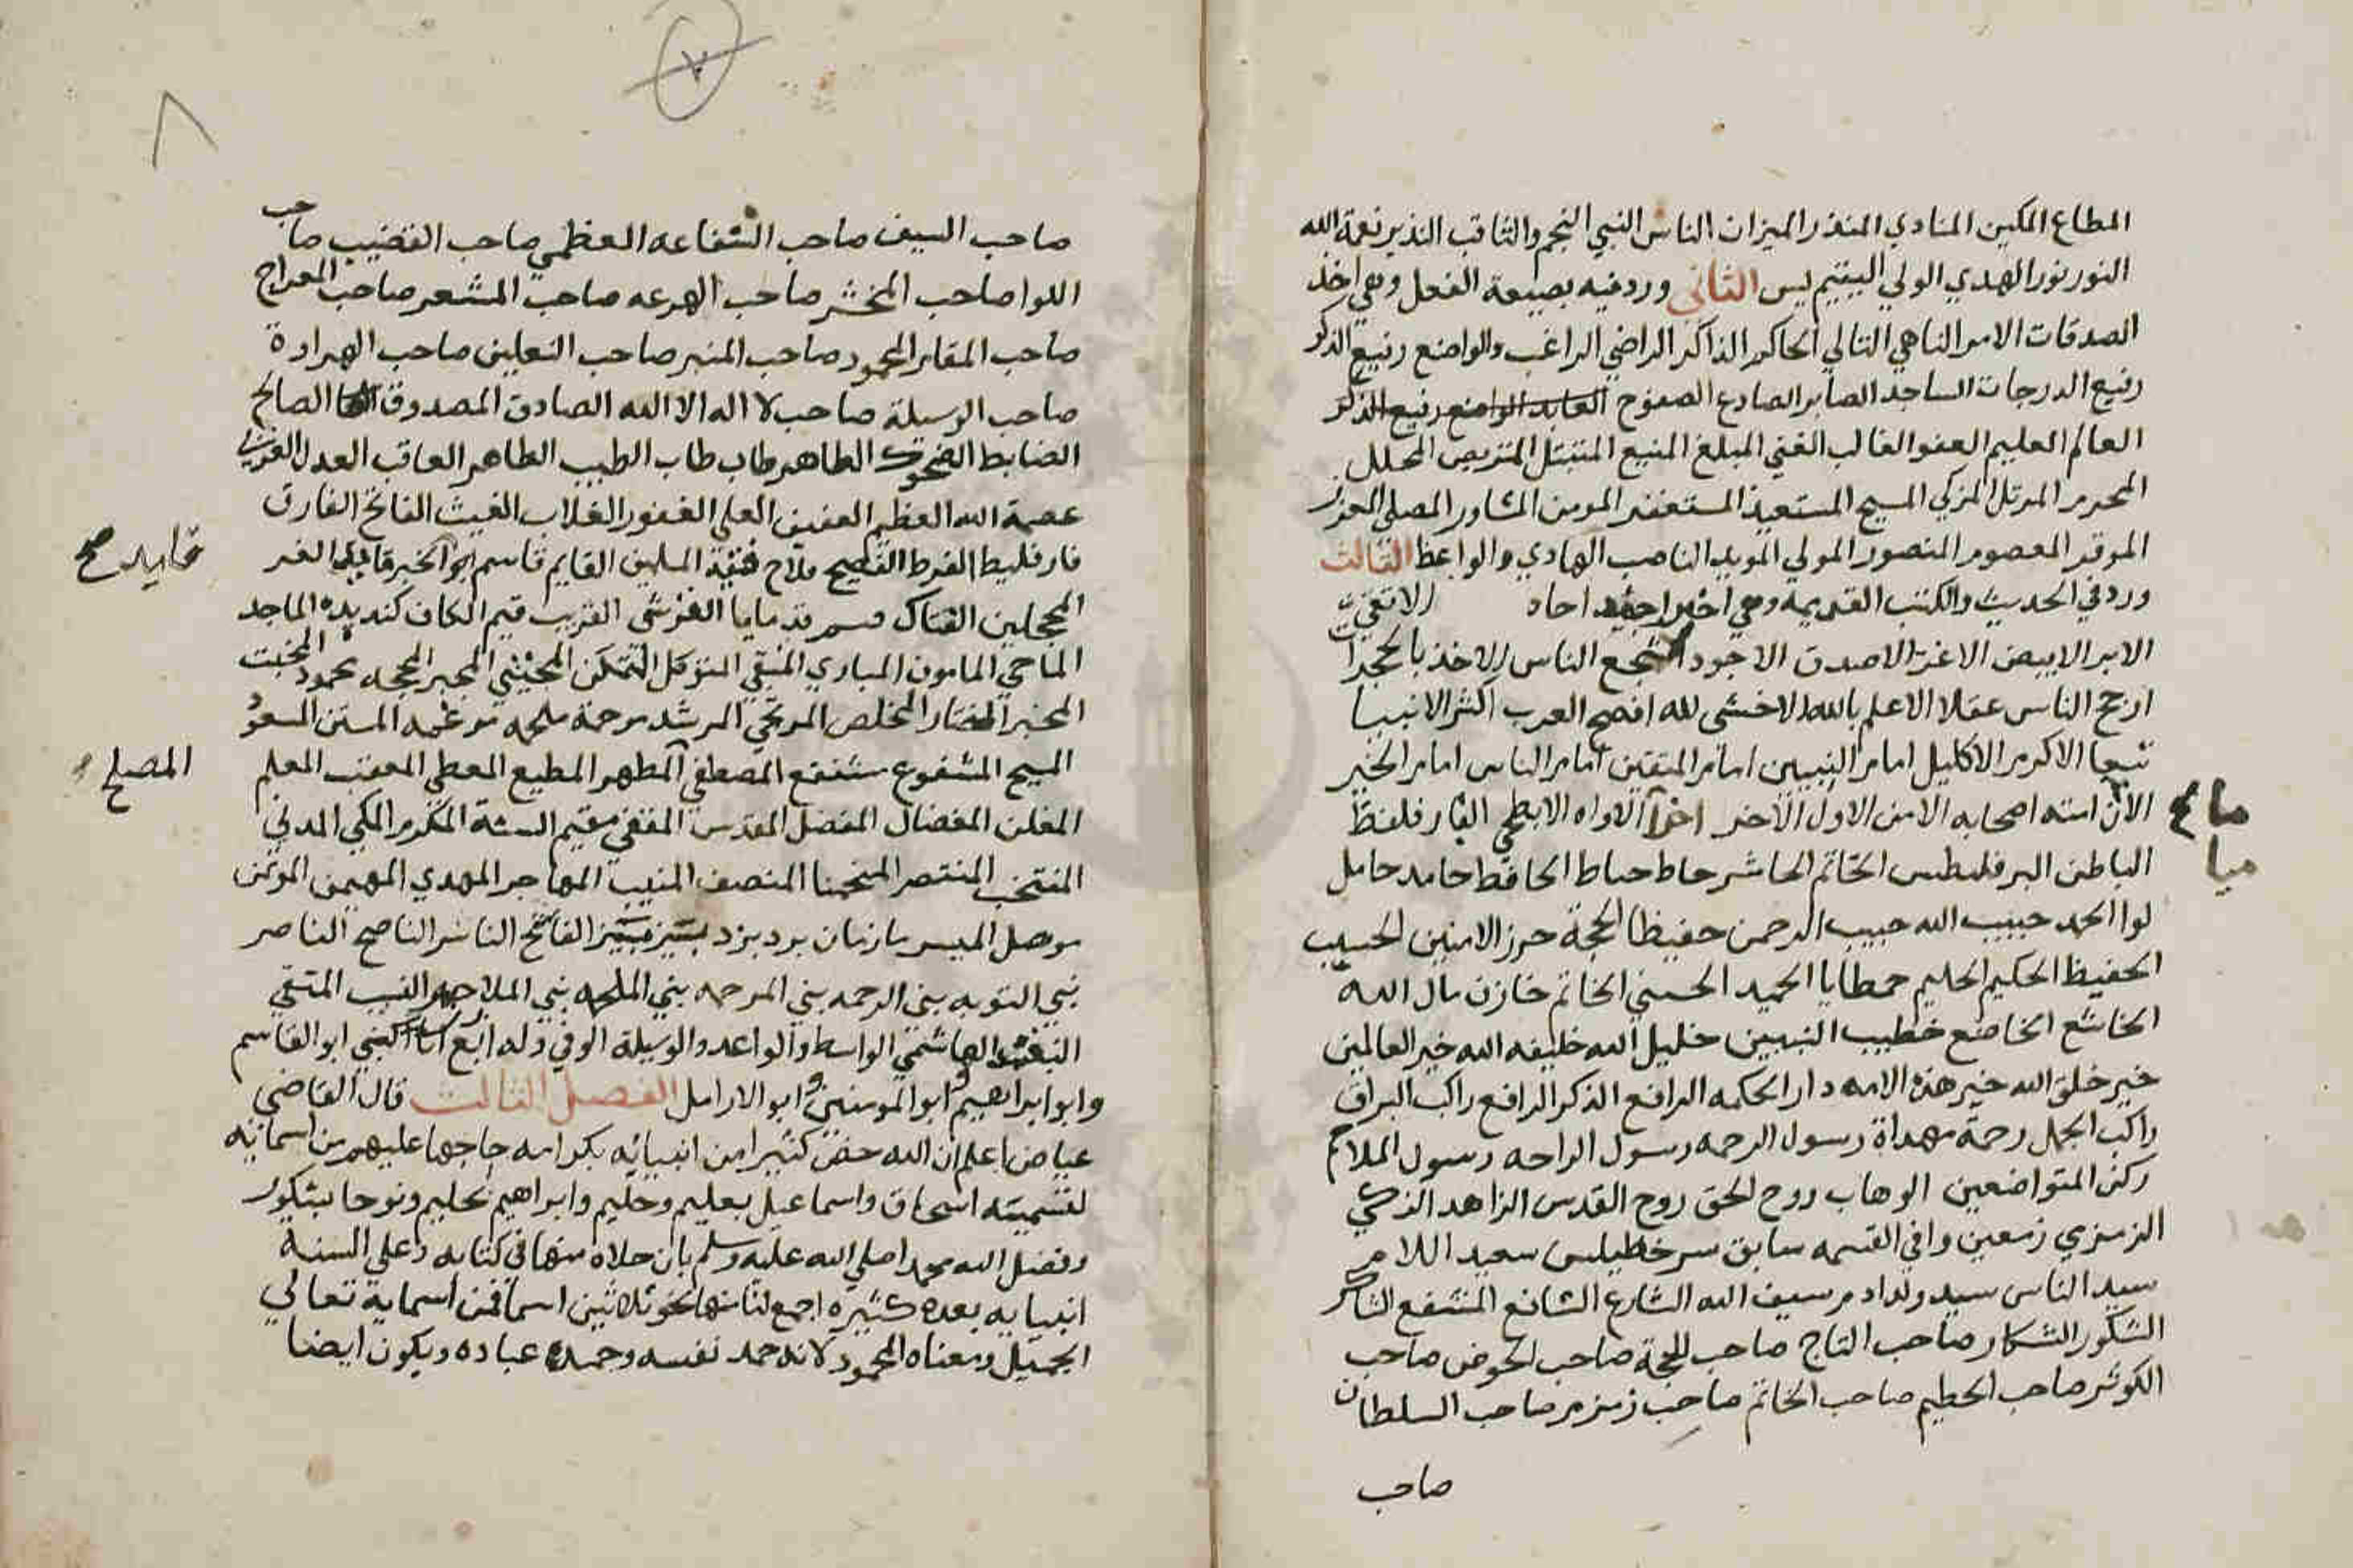 المطاع المكين المنادي المنذر الميزان الناس النبي النجم والثاقب النذير نعمة الله
النور نور الهدي الولي اليتيم يس الثاني وردفيه بصيعة الفعل وهي اخذ
الصدقات الامر الناهي التالي الحاكم الذاكر الراضي الراغب والواضع رفيع الذكر
رفيع الدرجات الساجد الصابر الصادع الصفوح العابد الواضع رفيع الذكر
العالم العليم العفو الغالب الغني المبلغ المنيع المتبتل المتربص المحلل
المحرم المرتل المزكي المسبح المستعيذ المستغفر المومن المشاور المصلي المعزز
الموقر المعصوم المنصور المولي المويد الناصب الهادي والواعظ الثالث
ورد في الحديث والكتب القديمه وهي احاد الاتقي
الابر الابيض الاغر الاصدق الاجود اشجع الناس الاخذ بالحجزات
ارجح الناس عقلا الاعلم بالله الاخشى لله افصح العرب اكثر الانبيا
تبعا الاكرم الاكليل امام النبيين امام المتقين امام الناس امام الخير
الامن امنه اصحابه الامن الاول الاخر الاواه الابطحي
الباطن البرقليطس الخاتم الحاشر حاط حياط الحافظ حامد حامل
لوا الحمد حبيب الله حبيب الرحمن حفيظا الحجة حرز الامنين الحسيب
الحفيظ الحكيم الحليم حمطايا الحميد الحسني الخاتم خازن مال الله
الخاشع الخاضع خطيب النبيين خليل الله خليفه الله خير العالمين
خير خلق الله خير هذه الامه دار الحكمه الرافع الذكر الرافع راكب البراق
راكب الجمل رحمة مهداة رسول الرحمه رسول الراحه رسول الملاحم
ركن المتواضعين الوهاب روح الحق روح القدس الزاهد الزكي
الزمزمي زمعين وافي القسمه سابق سرخطيلس سعيد اللام
سيد الناس سيد ولد ادم سيف الله الشارع الشافع المشفع الشاكر
الشكور الشكار صاحب التاج صاحب الحجة صاحب الحوض صاحب
الكوثر صاحب الحطيم صاحب الخاتم صاحب زمزم صاحب السلطان
صاحب
ماع
ميا
٧
٨
صاحب السيف صاحب الشفاعه العظمي صاحب القضيب صاحب
اللوا صاحب المحشر صاحب الهرعه صاحب المشعر صاحب المعراج
صاحب المقام المحمود صاحب المنبر صاحب النعلين صاحب الهراوة
صاحب الوسيلة صاحب لا اله الا الله الصادق المصدوق الصالح
الضابط الضحوك الطاهر طاب طاب الطيب الطاهر العاقب العدل العربي
عصمة الله العظيم العفيف العلي الغفور الغلاب الغيث الفاتح الفارق
فارقليط الفرط الفصيح فلاح فئة المسلمين القايم قاسم ابو الخير الغر
قايد صح
المحجلين القتاك قسم قدمايا القرشي القريب قيم الكاف كنديده الماجد
الماحي المامون المباري المتقي المتوكل المتمكن المجتبي المجير المحجه محمود المخبت
المخبر المختار المخلص المرتجي المرشد مرحمة ملحمه مرغمه المستن المسعود
المسيح المشفوع مشفع المصطفي المطهر المطيع المعطي المعقب المعلم
المصلح
المعلن المفضال المفضل المقدس المقفي مقيم السنة المكرم المكي المدني
المنتخب المنتصر المنحمنا المنصف المنيب المهاجر المهدي المهيمن الموتمن
موصل الميسر الفاتح الناشر الناصح الناصر
نبي التوبه نبي الرحمه نبي المرحمه نبي الملحمه نبي الملاحم النسيب المتقي
الهاشمي الواسط والواعد والوسيلة الوفي وله اربع كنا الكني ابو القاسم
وابو ابراهيم وابو المومنين وابو الارامل الفصل الثالث قال القاضي
عياض اعلم ان الله خص كثيرا من انبيائه بكرامه خلعها عليهم من اسمائه
لتسميته اسحاق واسماعيل بعليم وحليم وابراهيم بحليم ونوحا بشكور
وفضل الله محمدا صلي الله عليه وسلم بان حلاه منها في كتابه وعلي السنة
انبيايه بعده كثيره اجمع لنا منها نحو ثلاثين اسما فمن اسمايه تعالي
الجميل ومعناه المحمود لانه حمد نفسه وحمده عباده ويكون ايضا